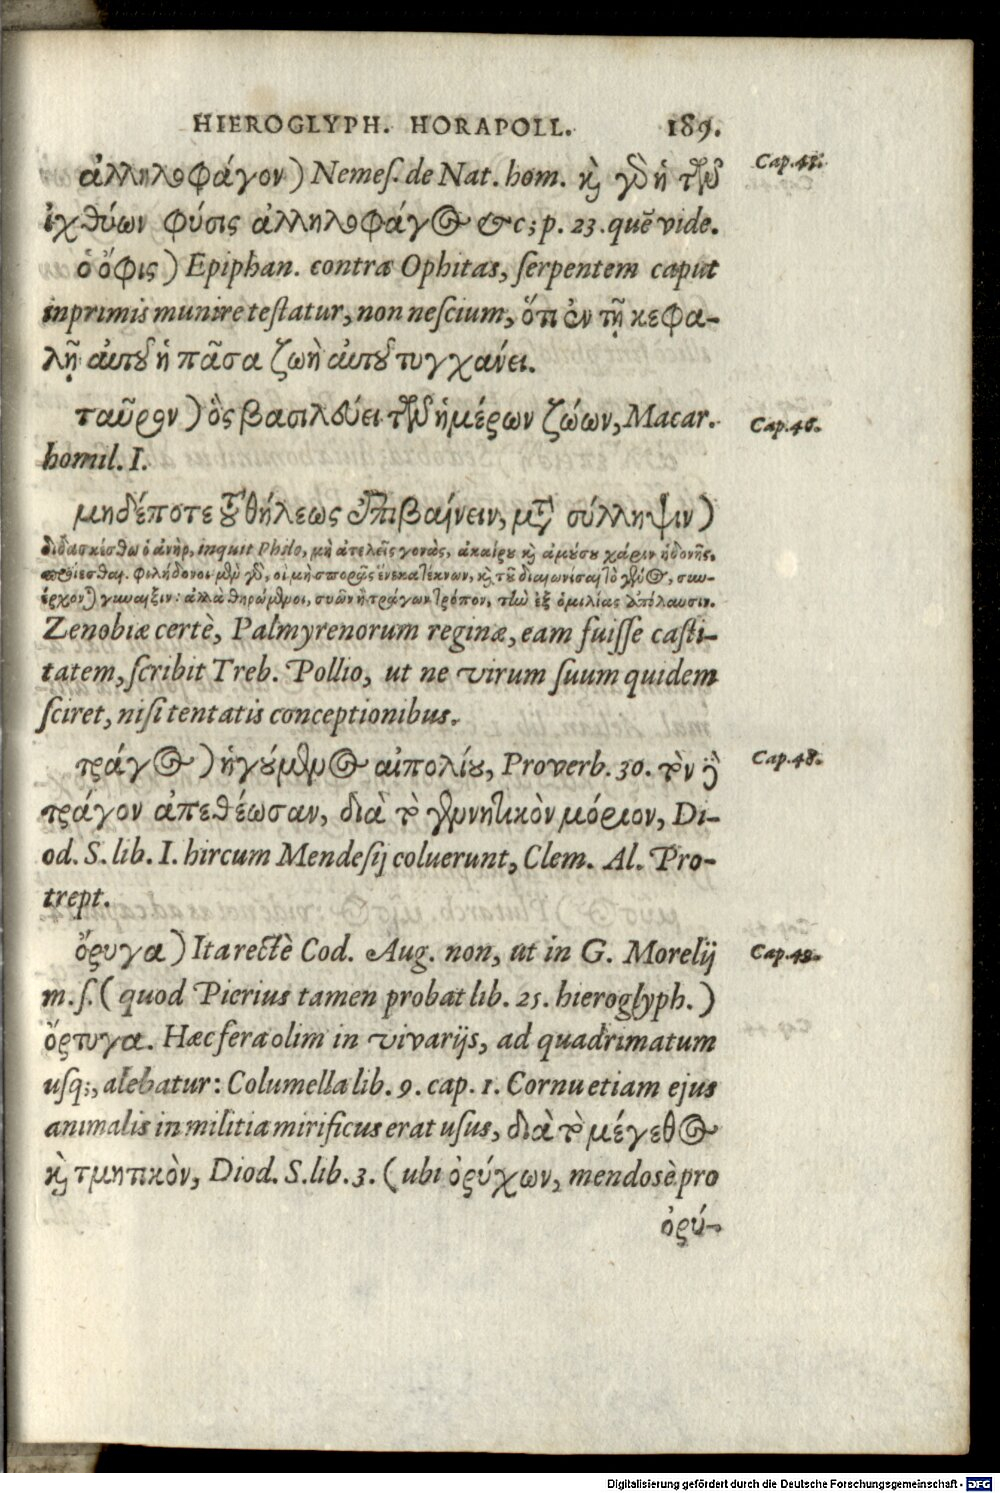 HIEROGLYPH. HORAPOLL. 189.
ἀλληλοφάγον) Nemeſ. de Nat. hom. καὶ γὸ ἡ τῶν Cap. 41.
ἰχθύων φύσις ἀλληλοφάγος &c; p. 23. quē vide.
ὁ ὄφις) Epiphan. contra Ophitas, ſerpentem caput
inprimis munire teſtatur, non neſcium, ὅτι ἐν τῇ κεφα-
λῇ αὐτοῦ ἡ πᾶσα ζωὴ αὐτοῦ τυγχάνει.
ταῦρον) ὃς βασιλεύει τῶν ἡμέρων ζώων, Macar. Cap. 46.
homil. I.
μηδέποτε τοῦ θήλεως ἐπιβαίνειν, μετὰ σύλληψιν)
διδασκέσθω ὁ ἀνὴρ, inquit Philo, μὴ ἀτελεῖς γονὰς, ἀκαίρου καὶ ἀμούσου χάριν ἡδονῆς,
προΐεσθαι. φιλήδονοι μὲν γὸ, οἱ μὴ σπορᾶς ἕνεκα τέκνων, καὶ τοῦ διαιωνίσαι τὸ γένος, συν-
έρχονται γυναιξίν: ἀλλὰ θηρώμενοι, συῶν ἢ τράγων τρόπον, τὴν ἐξ ὁμιλίας ἀπόλαυσιν.
Zenobiæ certè, Palmyrenorum reginæ, eam fuiſſe caſti-
tatem, ſcribit Treb. Pollio, ut ne virum ſuum quidem
ſciret, niſi tentatis conceptionibus.
τράγος) ἡγούμενος αἰπολίου, Proverb. 30. τὸν δὲ Cap. 48.
τράγον ἀπεθέωσαν, διὰ τὸ γεννητικὸν μόριον, Di-
od. S. lib. I. hircum Mendeſij coluerunt, Clem. Al. Pro-
trept.
ὄρυγα) Ita rectè Cod. Aug. non, ut in G. Morelij Cap. 49.
m. ſ. (quod Pierius tamen probat lib. 25. hieroglyph.)
ὄρτυγα. Hæc fera olim in vivarijs, ad quadrimatum
uſq;, alebatur: Columella lib. 9. cap. 1. Cornu etiam ejus
animalis in militia mirificus erat uſus, διὰ τὸ μέγεθος
καὶ τμητικὸν, Diod. S. lib. 3. (ubi ὀρύχων, mendosè pro
ὀρύ-
Digitalisierung gefördert durch die Deutsche Forschungsgemeinschaft - DFG